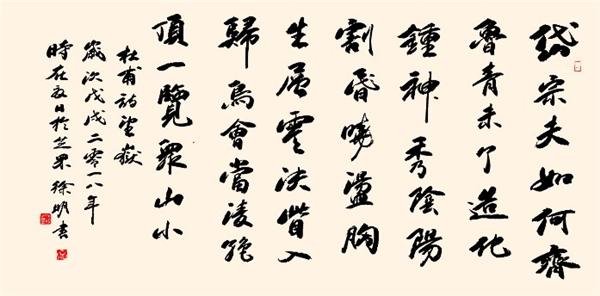 岱宗夫如何齊
魯青未了造化
鍾神秀陰陽
割昏曉盪胸
生層雲決眥入
歸鳥會當凌絕
頂一覽眾山小
杜甫詩望嶽
歲次戊戌二零一八年
時在夏日於芝罘徐明書